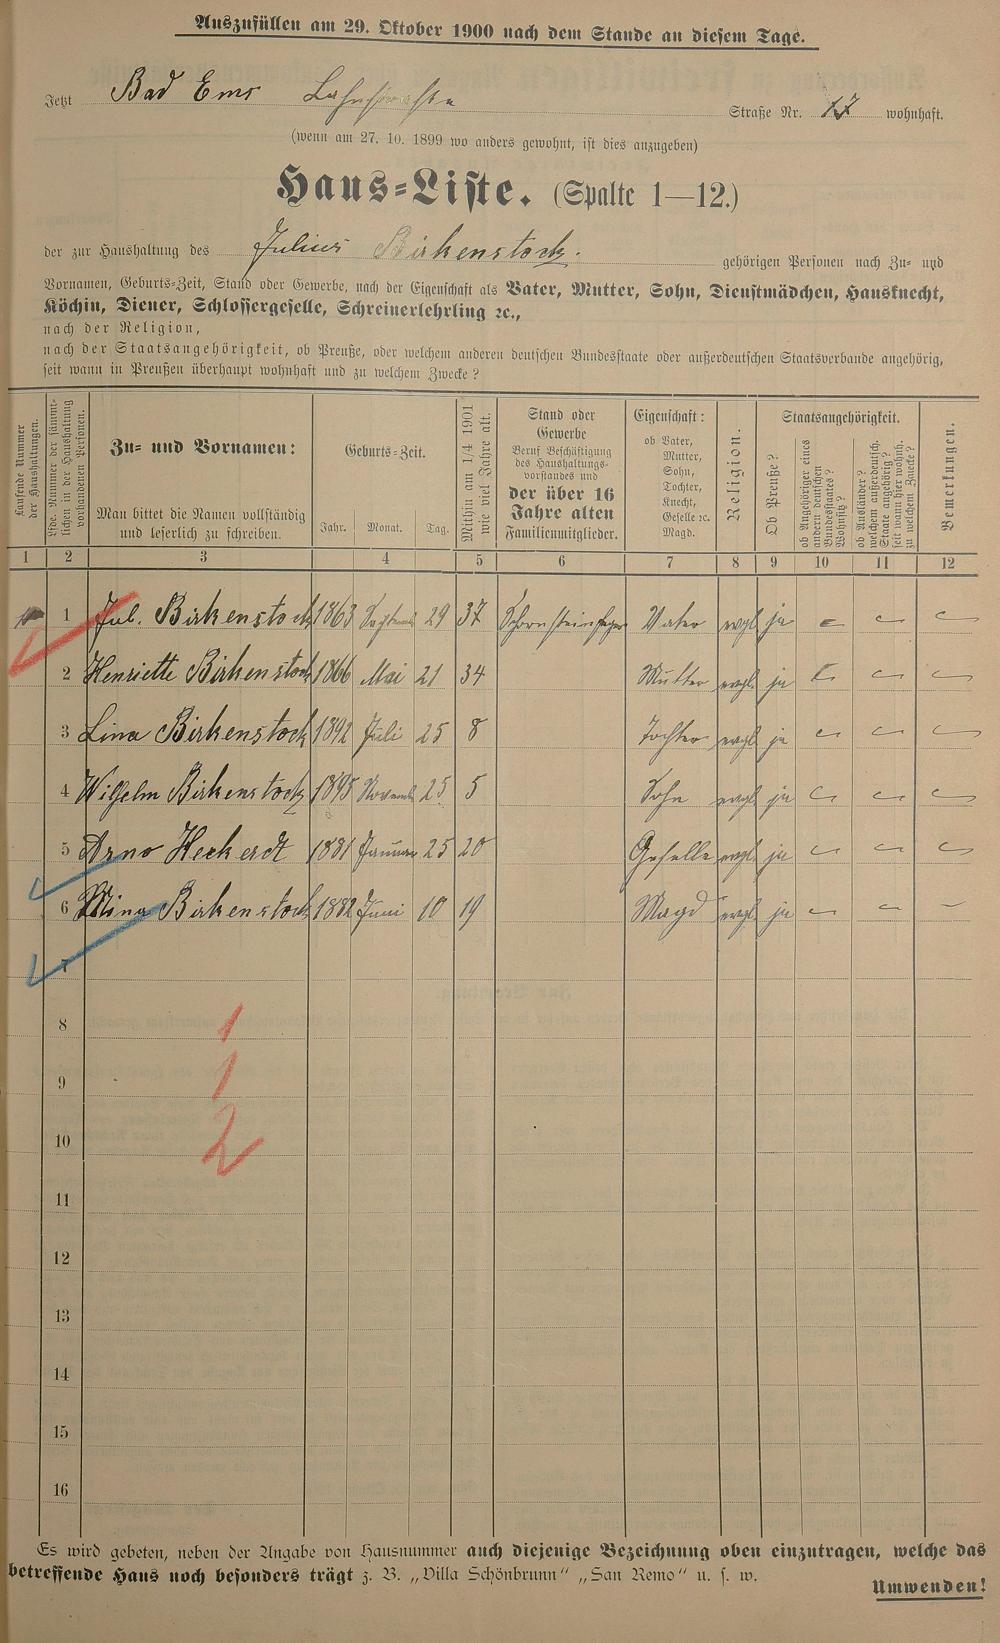 Auszufüllen am 29. Oktober 1900 nach dem Stande an diesem Tage.
Jetzt Bad Ems Lahnstraße Straße Nr. 17 wohnhaft.
(wenn am 27. 10. 1899 wo anders gewohnt, ist dies anzugeben)
Haus-Liste. (Spalte 1—12.)
der zur Haushaltung des Julius Birkenstock. gehörigen Personen nach Zu- und
Vornamen, Geburts-Zeit, Stand oder Gewerbe, nach der Eigenschaft als Vater, Mutter, Sohn, Dienstmädchen, Hausknecht,
Köchin, Diener, Schlossergeselle, Schreinerlehrling ꝛc.,
nach der Religion,
nach der Staatsangehörigkeit, ob Preuße, oder welchem anderen deutschen Bundesstaate oder außerdeutschen Staatsverbande angehörig,
seit wann in Preußen überhaupt wohnhaft und zu welchem Zwecke?
Laufende Nummer
der Haushaltungen.
Lfde. Nummer der sämmt-
lichen in der Haushaltung
vorhandenen Personen.
Zu- und Vornamen:
Man bittet die Namen vollständig
und leserlich zu schreiben.
Geburts-Zeit.
Jahr. Monat. Tag.
Mithin am 1/4 1901
wie viel Jahre alt.
Stand oder
Gewerbe
Beruf Beschäftigung
des Haushaltungs-
vorstandes und
der über 16
Jahre alten
Familienmitglieder.
Eigenschaft:
ob Vater,
Mutter,
Sohn,
Tochter,
Knecht,
Geselle ꝛc.
Magd.
Religion.
Staatsangehörigkeit.
Ob Preuße?
ob Angehöriger eines
andern deutschen
Bundesstaates?
Wohnsitz?
ob Ausländer?
welchem außerdeutsch.
Staate angehörig?
seit wann hier wohnh.
zu welchem Zwecke?
Bemerkungen.
1 2 3 4 5 6 7 8 9 10 11 12
1 Jul. Birkenstock 1863 September 29 37 Schornsteinfeger Vater evgl. ja
2 Henriette Birkenstock 1866 Mai 21 34 Mutter evgl. ja
3 Lina Birkenstock 1892 Juli 25 8 Tochter evgl. ja
4 Wilhelm Birkenstock 1895 Novemb. 25 5 Sohn evgl. ja
5 Arno Heckerdt 1881 Januar 25 20 Geselle evgl. ja
6 Mina Birkenstock 1882 Juni 10 19 Magd evgl. ja
7
8 1
9 1
10 2
11
12
13
14
15
16
Es wird gebeten, neben der Angabe von Hausnummer auch diejenige Bezeichnung oben einzutragen, welche das
betreffende Haus noch besonders trägt z. B. „Villa Schönbrunn" „San Remo" u. s. w.
Umwenden!